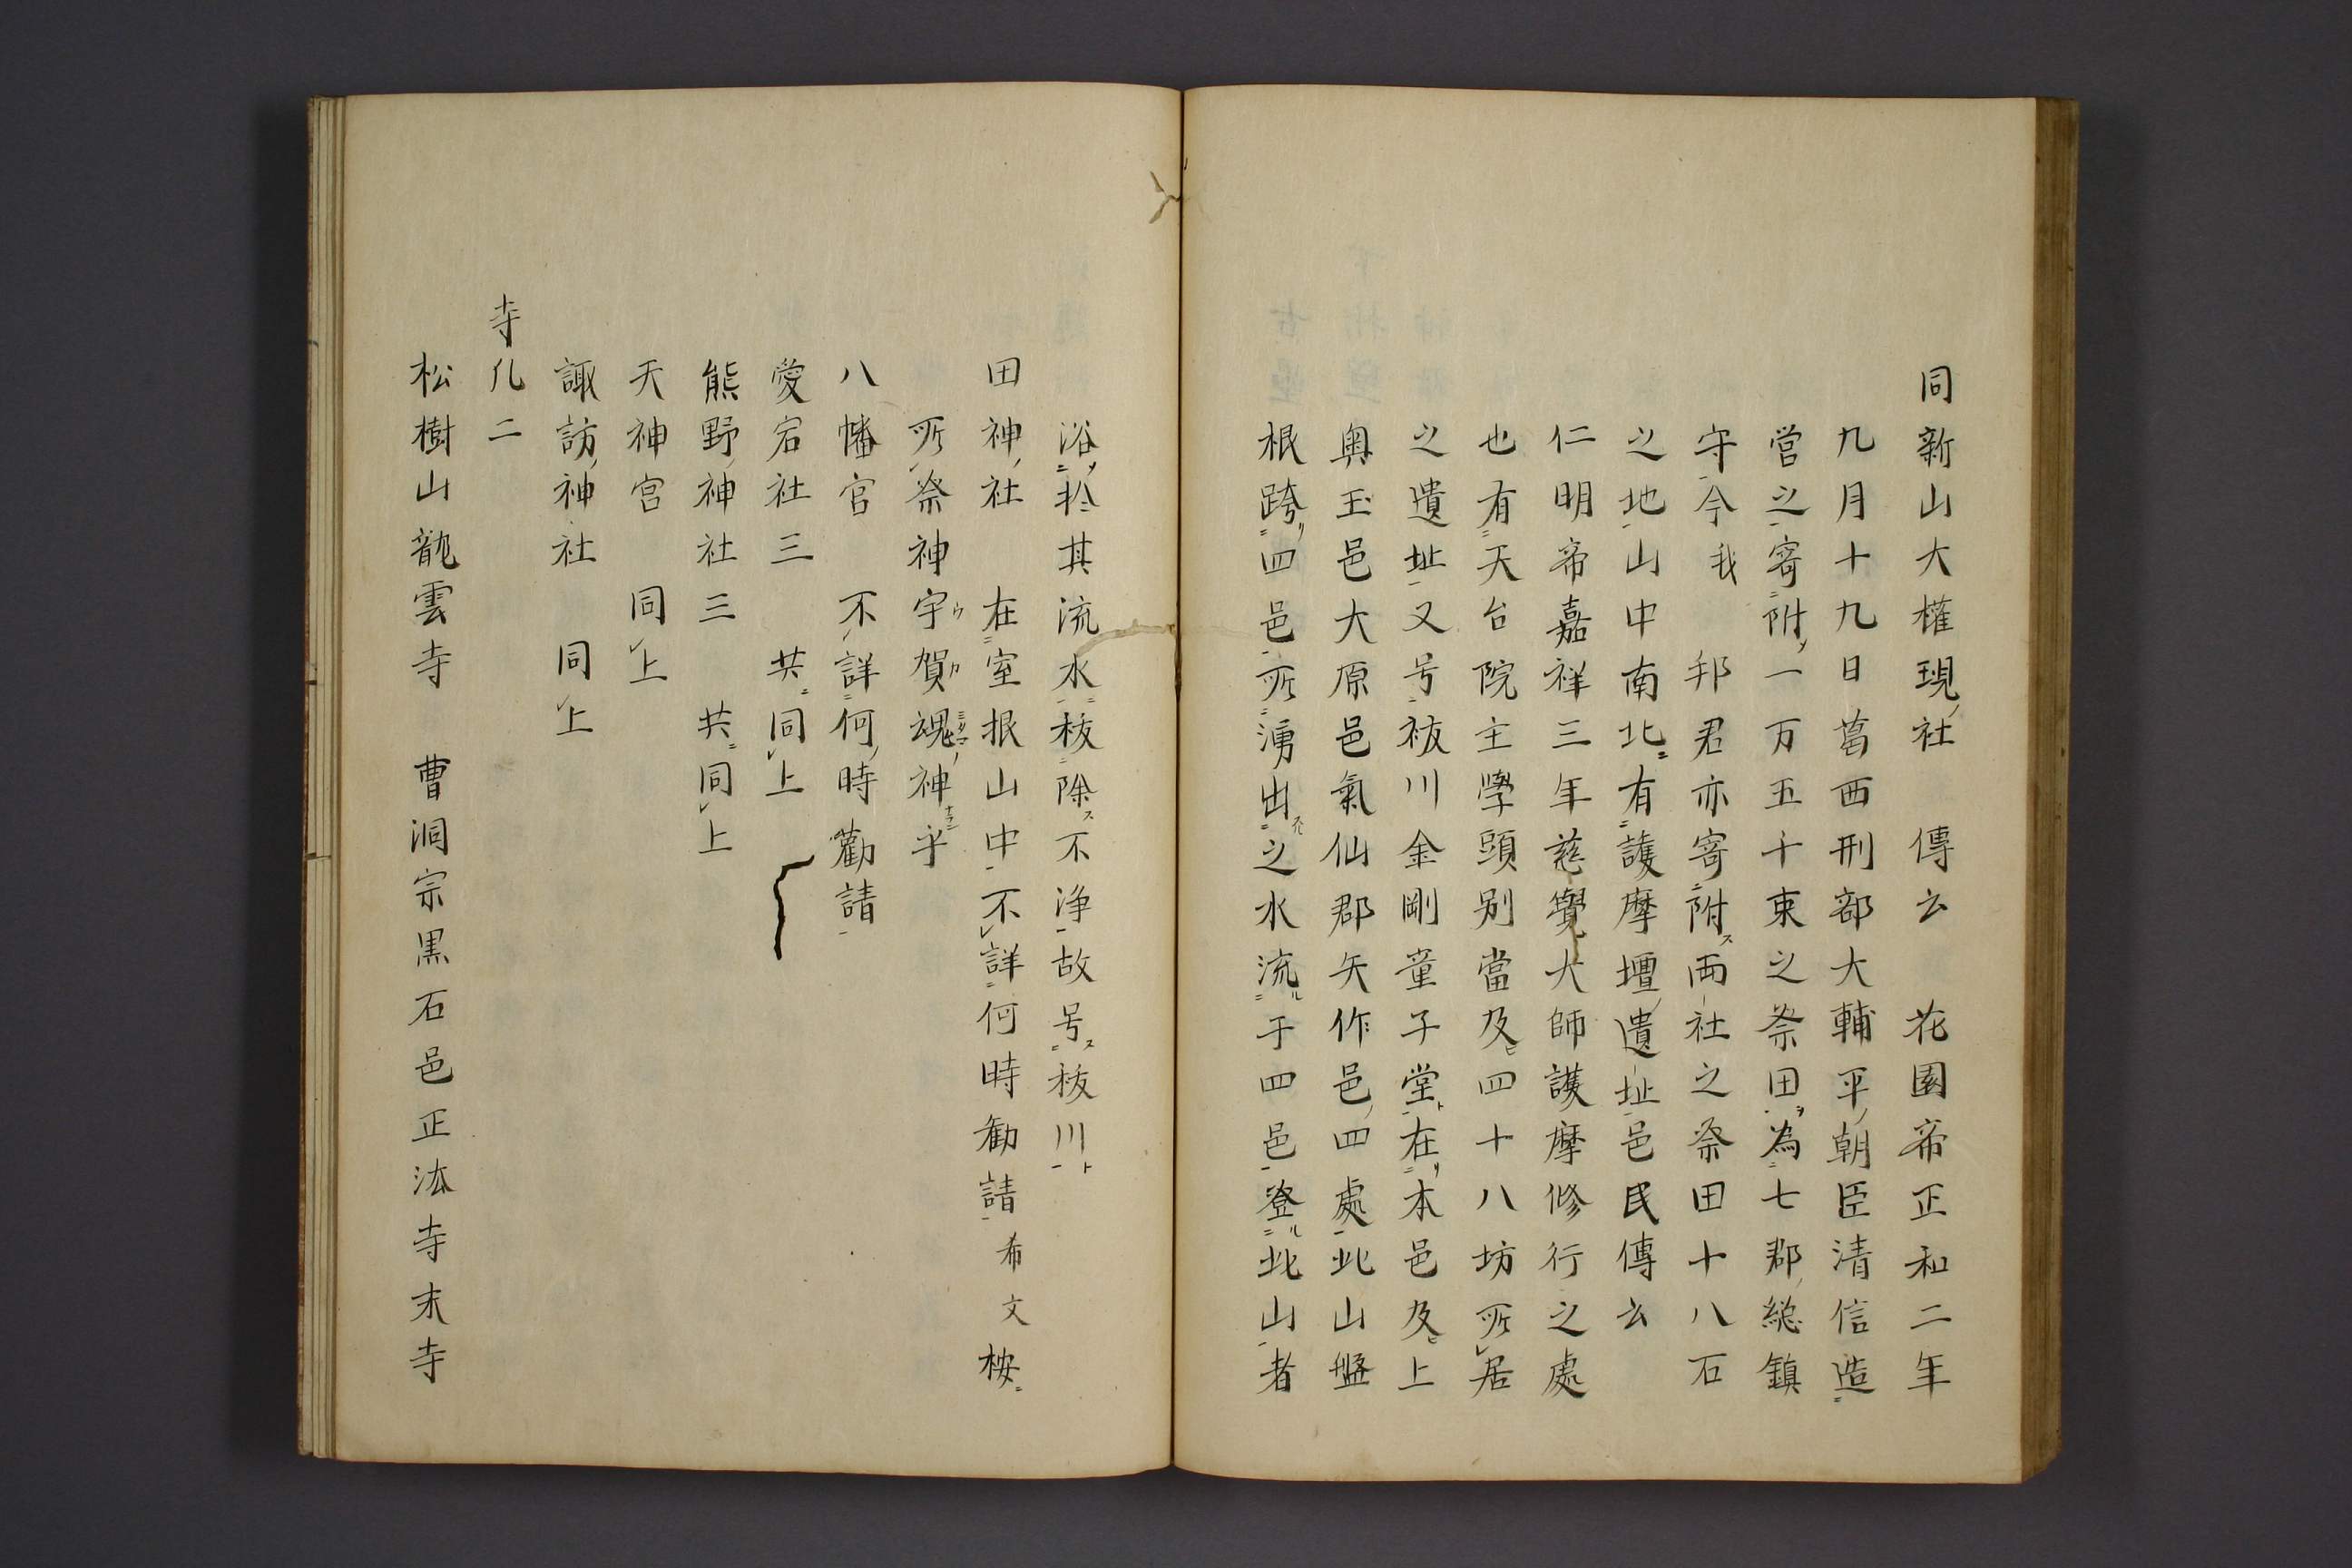 同新山大權現ノ社　傳云　花園帝正和二年
九月十九日葛西刑部大輔平ノ朝臣清信造
営之寄附ノ一万五千束之祭田ヲ為七郡ノ総鎮
守今我　邦君亦寄附ス両社之祭田十八石
之地山中南北ニ有護摩壇ノ遺址邑民傳云
仁明帝嘉祥三年慈覺大師護摩修行之處
也有天台院主學頭別當及ヒ四十八坊所居
之遺址又号祓川金剛童子堂ト在リ本邑及ヒ上
奥玉邑大原邑氣仙郡矢作邑ノ四處此山盤
根跨リ四邑所湧出之水流ル于四邑登ル此山者
浴ノ於其流水祓除ス不浄故号ス祓川ト
田神ノ社　在室根山中不詳何時勸請希文桉
所祭神宇ウ賀カ魂ミタマノ神ナラン乎
八幡宮　不詳何ノ時勸請
愛宕社三　共ニ同上
熊野ノ神社三　共ニ同上
天神宮　同上
諏訪ノ神社　同上
寺凡二
松樹山龍雲寺　曹洞宗黒石邑正法寺末寺